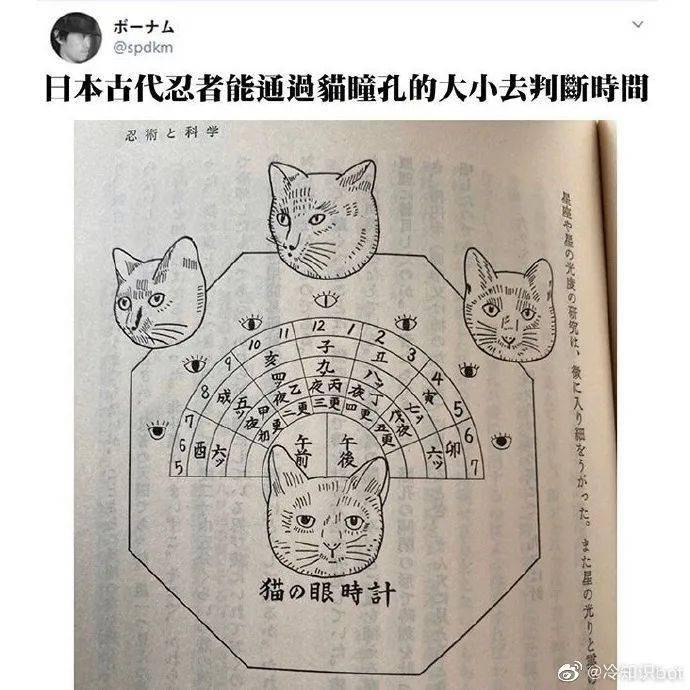 ボーナム
@spdkm
日本古代忍者能通過貓瞳孔的大小去判斷時間
忍術と科学
星座や星の光度の研究は、微に入り細をうがった。また星の光りと
5 6 7 8 9 10 11 12 1 2 3 4 5 6 7
酉 戌 亥 子 丑 寅 卯
六ッ 五ッ 四ッ 九ッ 八ッ 七ッ 六ッ
甲夜 乙夜 丙夜 丁夜 戊夜
初更 二更 三更 四更 五更
午前 午後
猫の眼時計
@冷知识bot